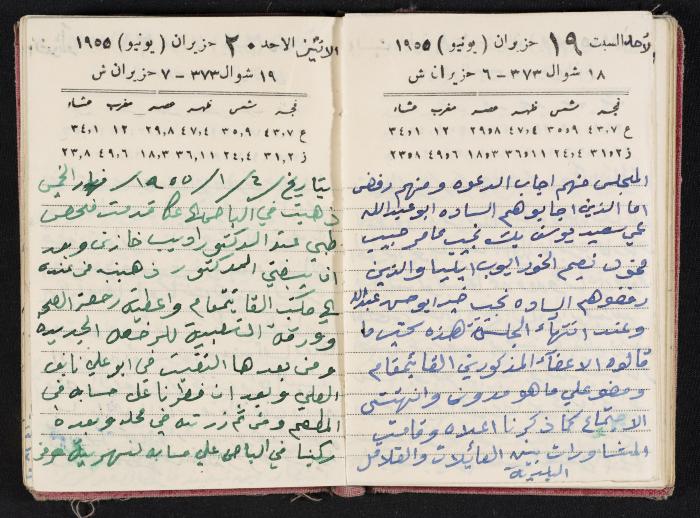 الأحد السبت ١٩ حزيران ( يونيو ) ١٩٥٥
١٨ شوال ٣٧٣ – ٦ حزيران ش
فجر شمس ظهر عصر مغرب عشاء
ع ٤٣،٧ ٣٥،٩ ٤٧،٤ ٢٩،٨ ١٢ ٣٤،١
ز ٣١،٢ ٢٤،٤ ٣٦،١١ ١٨،٣ ٤٩،٦ ٢٣،٨
المجلس منهم اجاب الدعوه ومنهم رفض
اما الذين اجابوهم الساده ابو عبدالله
علي سعيد يوسف بك نجيب عامر حبيب
نعيم الخوري ايوب ايليا والذين
رفضوهم الساده نجيب ابو حسن عبدالله
وعند انتهآء الجلسة هذه نكتب ما
قالوه الاعضآء المذكورين القائمقام
ومضو علي ما هو مدون وانتهى
الاجتماع كما ذكرنا اعلاه وقامت
المشاورات بين العائلات والقلاقل
البلدية
الاثنين الاحد ٢٠ حزيران ( يونيو ) ١٩٥٥
١٩ شوال ٣٧٣ – ٧ حزيران ش
فجر شمس ظهر عصر مغرب عشاء
ع ٤٣،٧ ٣٥،٩ ٤٧،٤ ٢٩،٨ ١٢ ٣٤،١
ز ٣١،٢ ٢٤،٤ ٣٦،١١ ١٨،٣ ٤٩،٦ ٢٣،٨
بتاريخ ٦/١/١٩٥٥ نهار الخميس
ذهبت في الباص الى عكا قدمت فحص
طبي عند الدكتور اديب خازن وبعد
ان الدكتور ذهبت من عنده
الى مكتب القائمقام واعطيته رخصة
وورقة الطلبية للرخصه الجديده
ومن بعدها التقيت في ابو علي نايف
العلي وبعد ان فطرنا على حسابه في
المطعم ومن ثم زرته في محله وبعده
ركبنا في الباص علي حسابه لنهرية